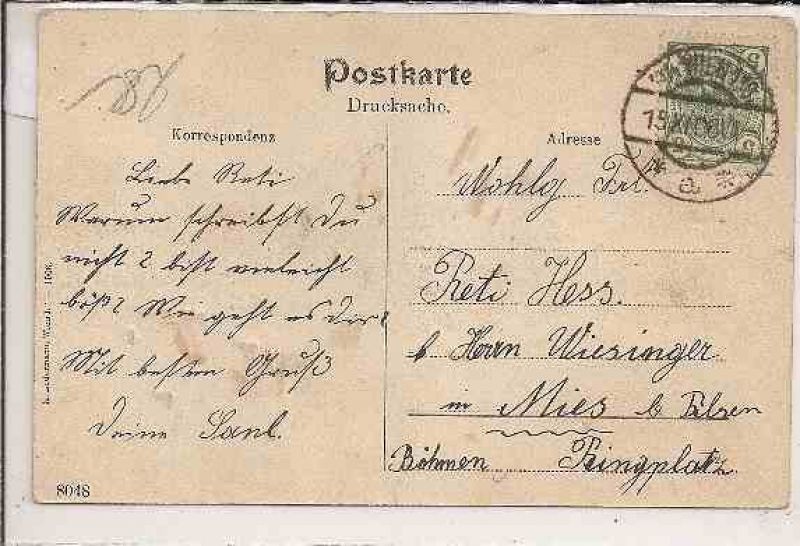 Postkarte
Drucksache.
Korrespondenz
Adresse
Liebe Reti
Warum schreibst Du
nicht? bist vieleicht
böß? Wie geht es Dir?
Mit besten Gruß
Deine
Wohlg Frl.
Reti Hess.
b Herrn Wiesinger
in Mies b Pilsen
Böhmen Ringplatz.
8048